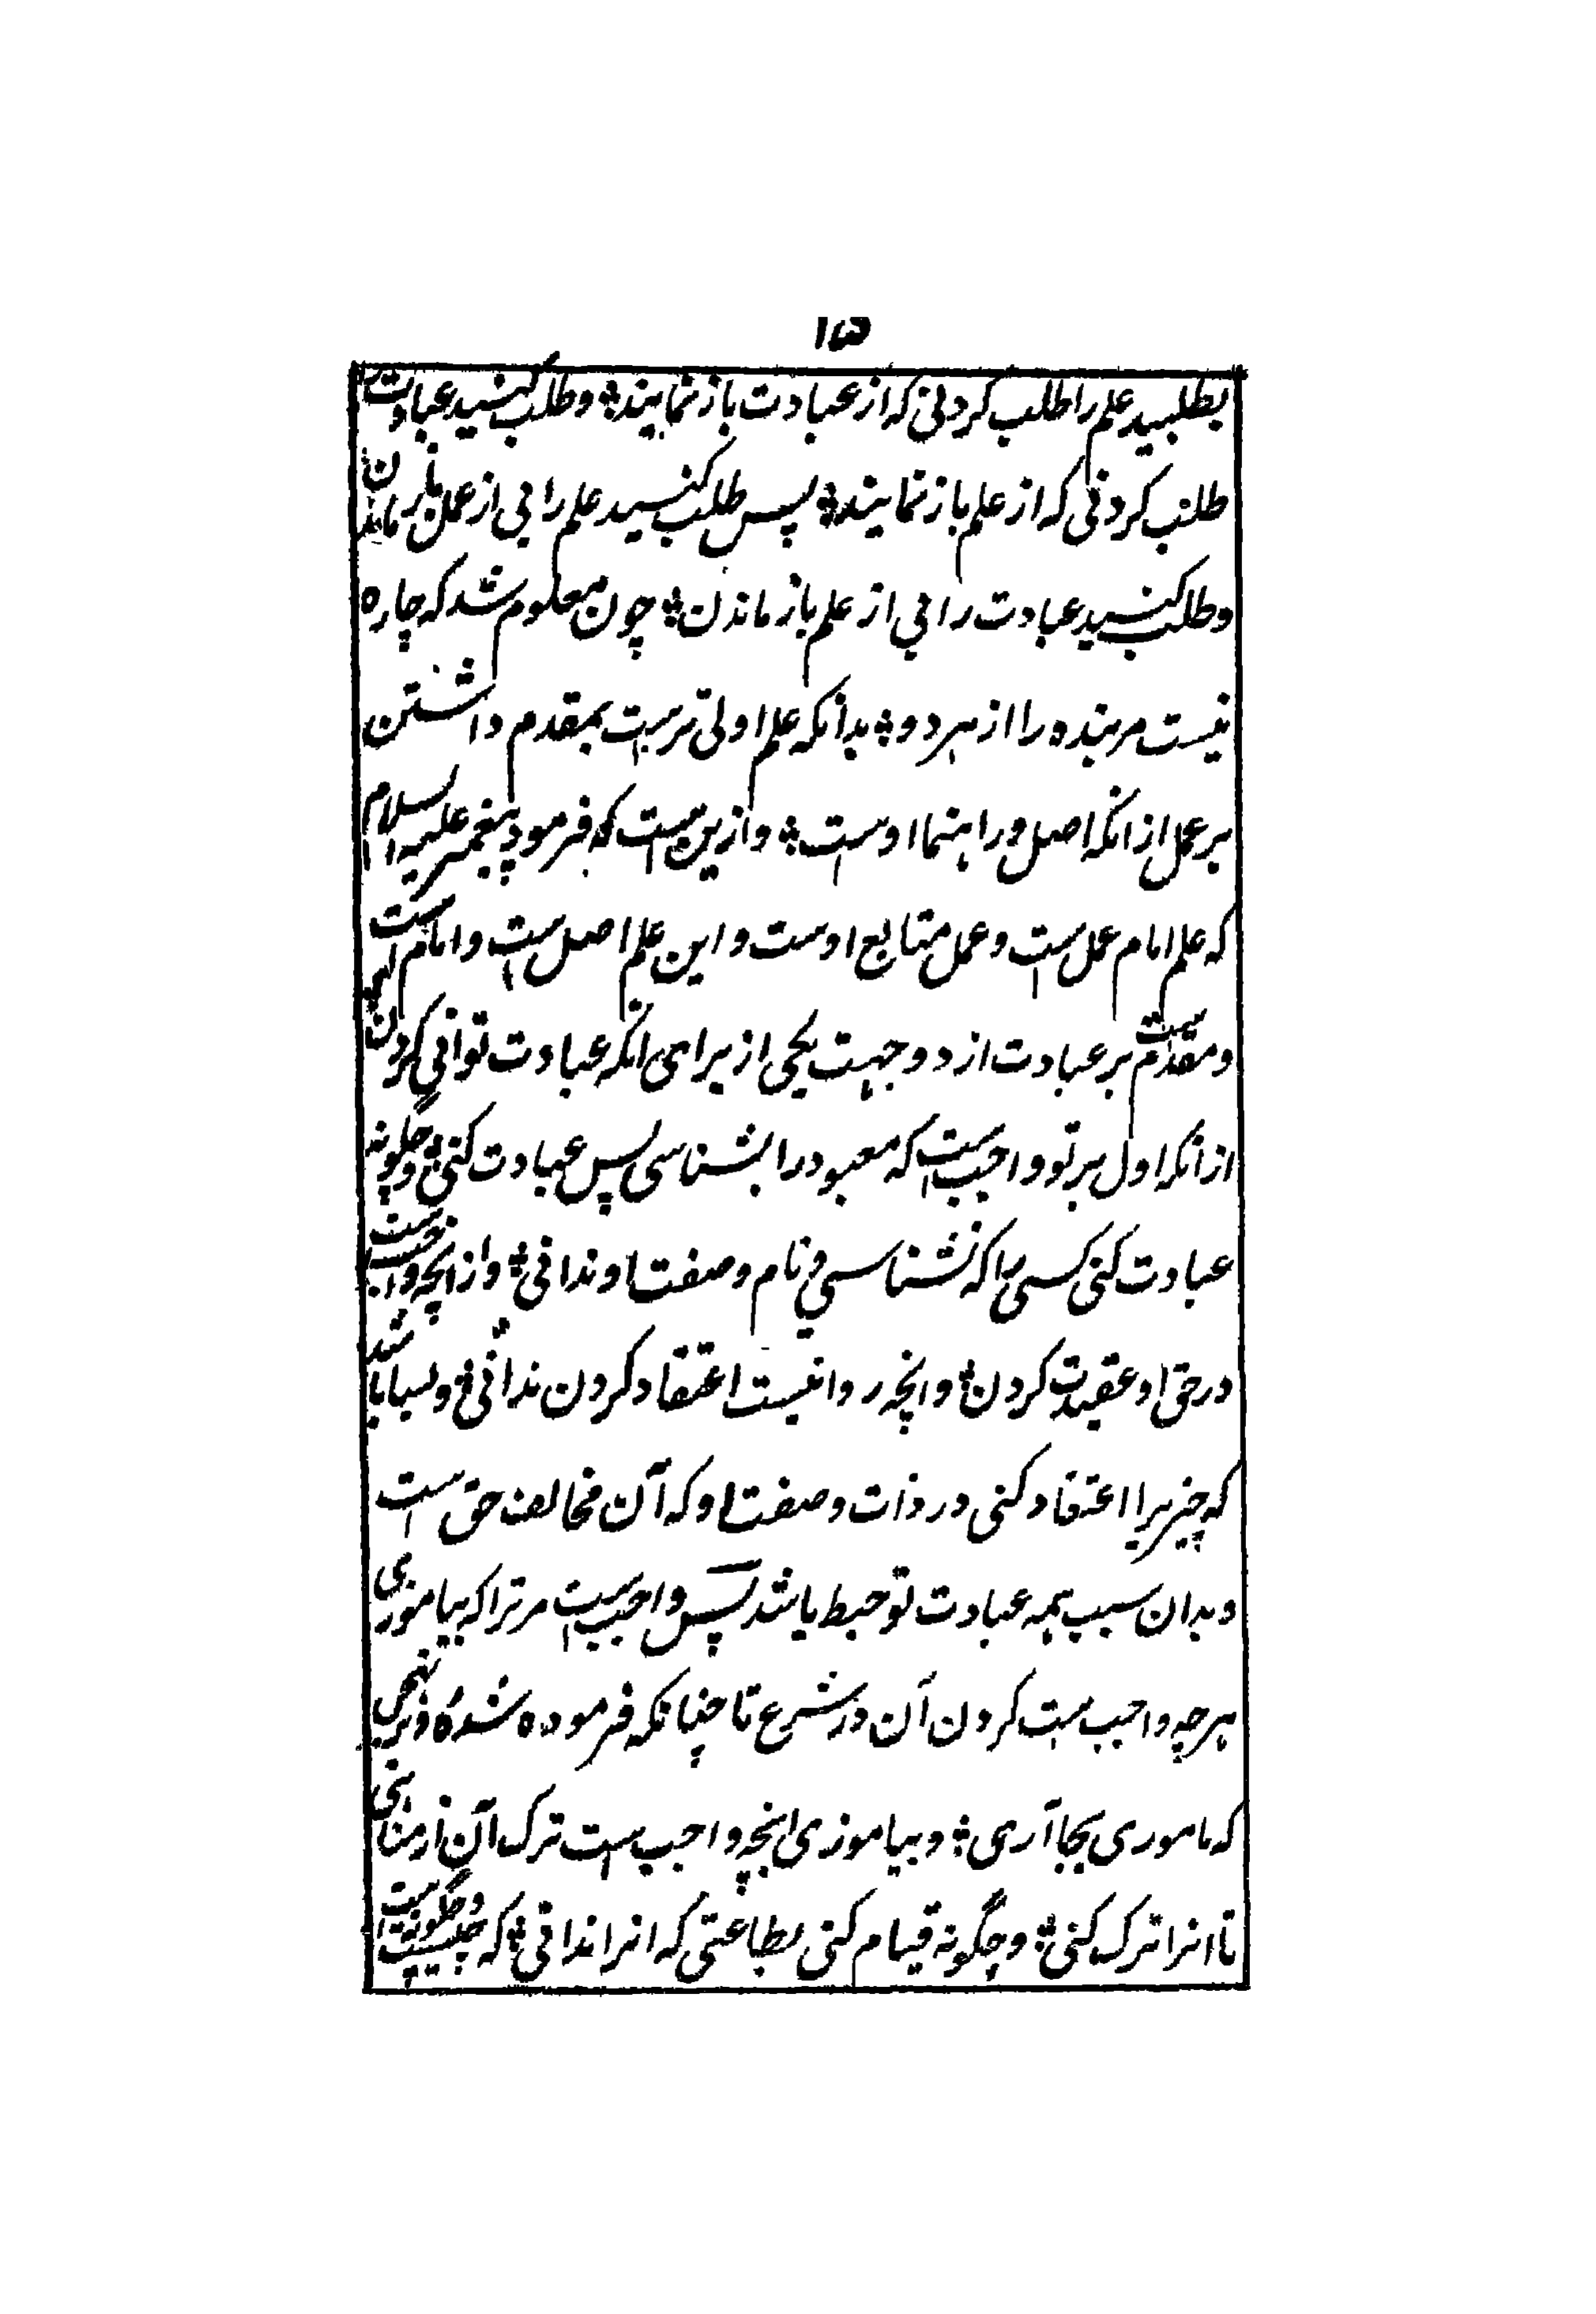 ۱۵
بطلبید علم را طلب کردنی که از عبادت باز نمایند؞ و طلب کنید عبادت
طلب کردنی که از علم باز نمایند؞ پس طلب کنید علم را بی از عمل باز ماندن
و طلب کنید عبادت را بی از علم باز ماندن؞ چون معلوم شد که چاره
نیست مر بنده را از هر دو؞ بدانکه علم اولی ترست بمقدم داشتن
بر عمل از انکه اصل و راهنما اوست؞ و ازین ست که فرمود پیغمبر علیه السلام
که علم امام عمل ست و عمل متابع اوست و این علم اصل ست و امام ست
و مقدم ست بر عبادت از دو جهت یکی از برای انکه عبادت توانی کردن
از انکه اول بر تو واجب ست که معبود را بشناسی پس عبادت کنی؞ و چگونه
عبادت کنی کسی را که نشناسی و نام و صفت او ندانی؞ و از انچه واجب ست
در حق او عقیدت کردن؞ و انچه روا نیست اعتقاد کردن ندانی؞ و بسا باشد
که چیزیرا اعتقاد کنی در ذات و صفت او که آن مخالف حق ست
و بدان سبب همه عبادت تو حبط باشد پس واجب ست مر ترا که بیاموزی
هر چه واجب ست کردن آن در شرع تا چنانکه فرموده شده و بر نهجی
که ماموری بجا آری؞ و بیاموزی انچه واجب ست ترک آن از مناهی
تا انرا ترک کنی؞ و چگونه قیام کنی بطاعتی که انرا ندانی؞ که چیست و چگونه ست